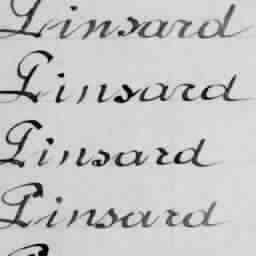 Linsard
Linsard
Linsard
Linsard